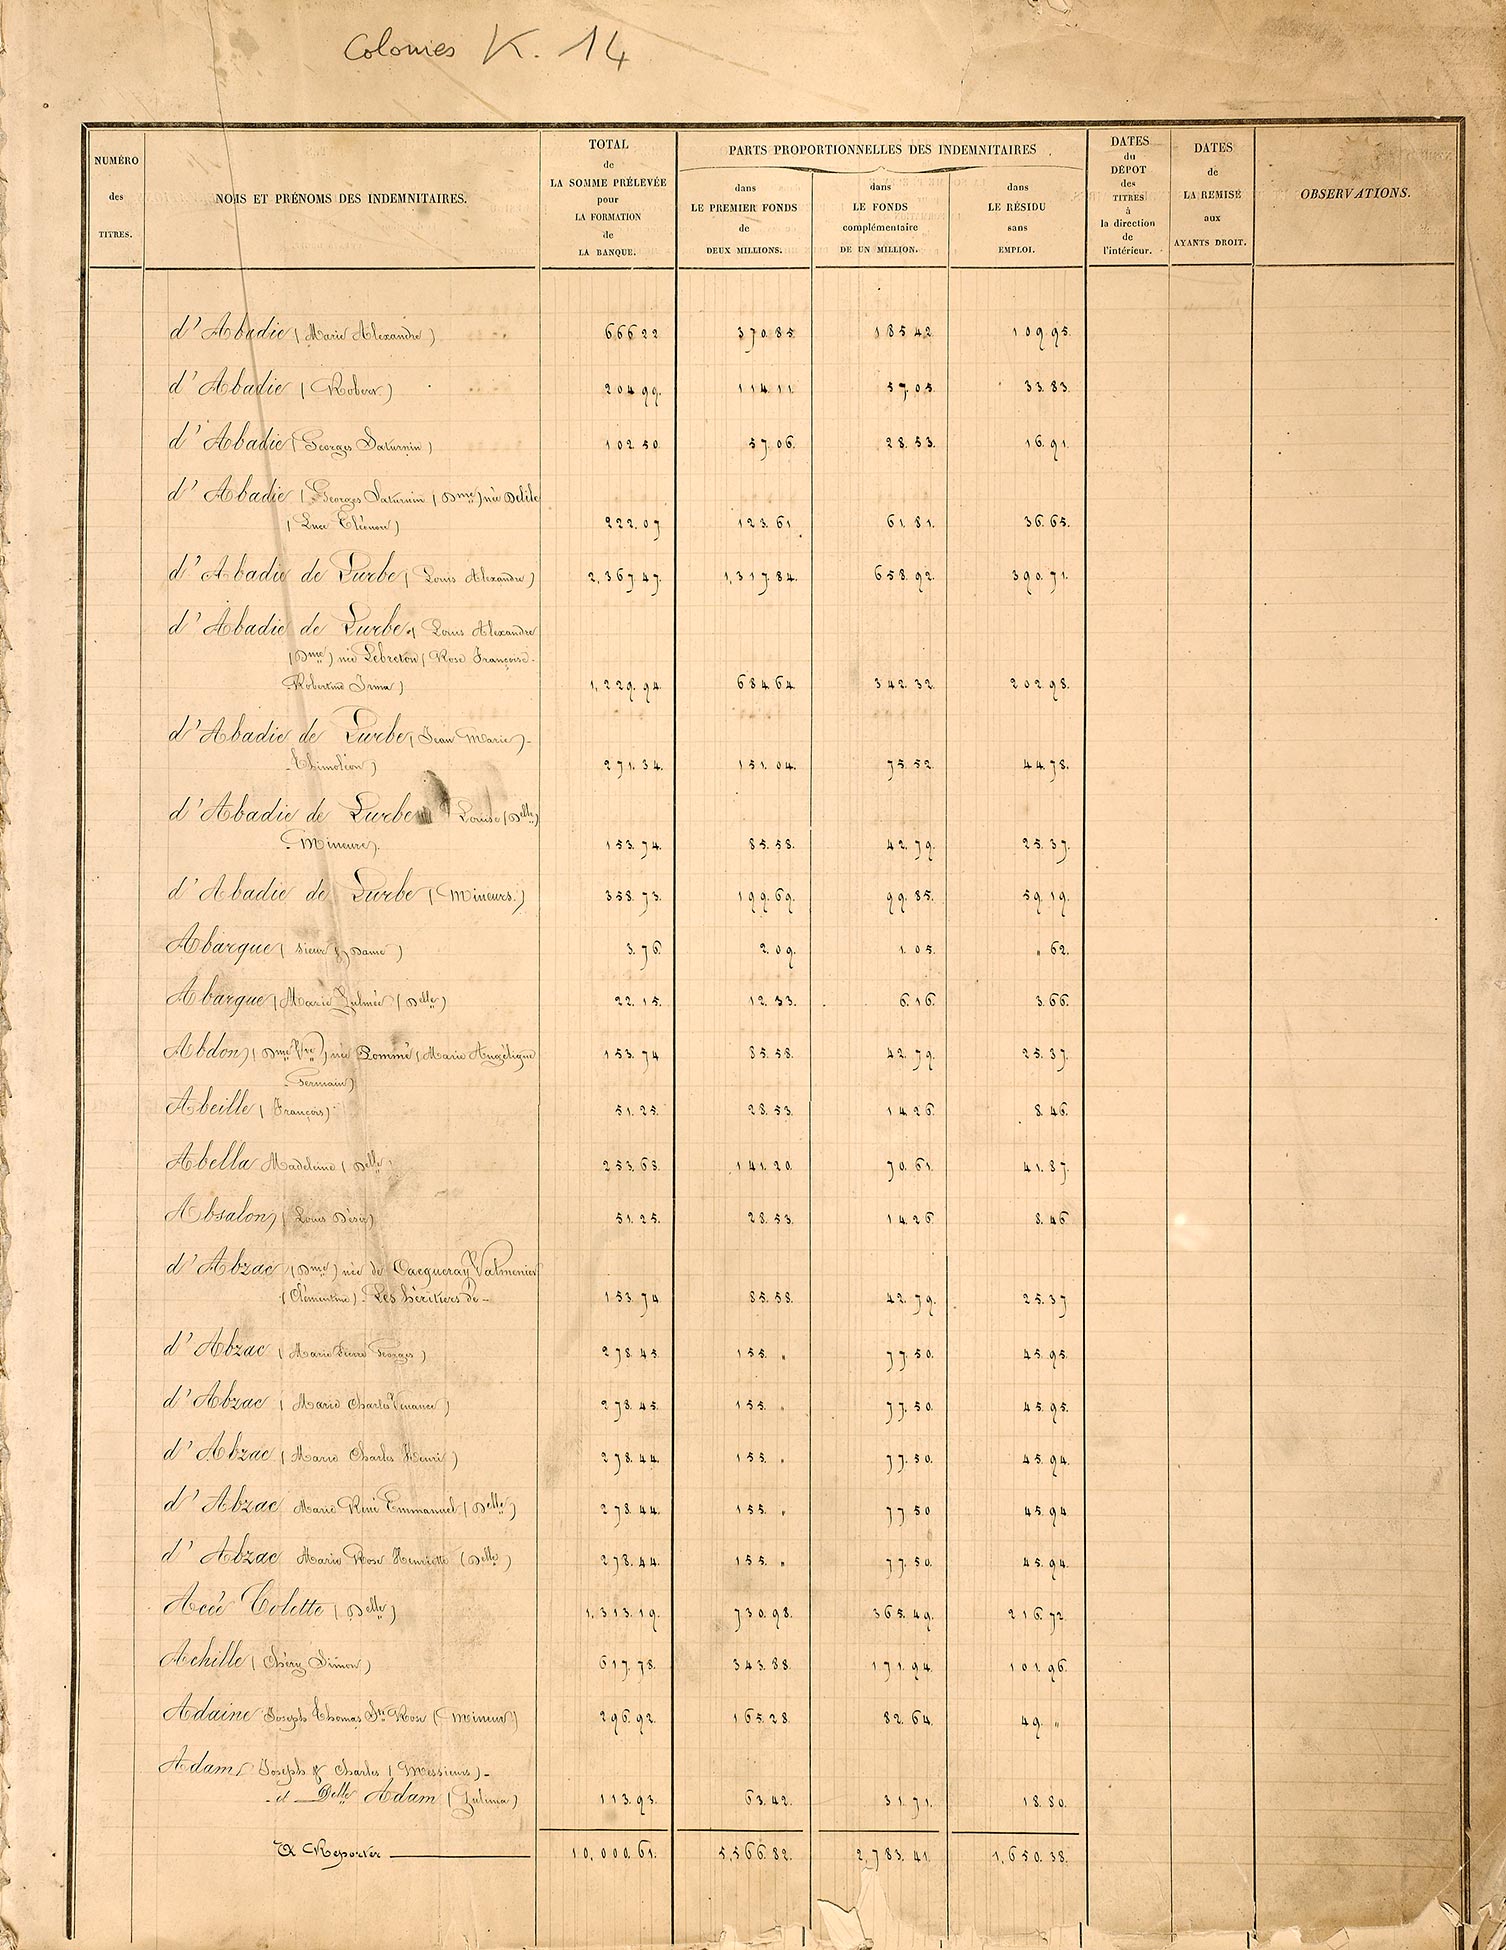 Colonies K. 14
NUMÉRO des TITRES.
NOMS ET PRÉNOMS DES INDEMNITAIRES.
TOTAL de LA SOMME PRÉLEVÉE pour LA FORMATION de LA BANQUE.
PARTS PROPORTIONNELLES DES INDEMNITAIRES
dans LE PREMIER FONDS de DEUX MILLIONS.
dans LE FONDS complémentaire DE UN MILLION.
dans LE RÉSIDU sans EMPLOI.
DATES du DÉPOT des TITRES à la direction de l'intérieur.
DATES de LA REMISE aux AYANTS DROIT.
OBSERVATIONS.
d'Abadie (Marie Alexandre) 666 22 370.85. 185 42. 109.95.
d'Abadie (Robert) 204 99. 114.11. 57.05. 33.83.
d'Abadie (Georges Saturnin) 102.50 57.06. 28.53. 16.91.
d'Abadie (Georges Saturnin (Dme) née Delile
(Luce Eléonore) 222.07 123.61 61.81. 36.65.
d'Abadie de Lurbe (Louis Alexandre) 2,367.47. 1,317.84. 658.92. 390.71.
d'Abadie de Lurbe (Louis Alexandre
(Dme) née Lebreton (Rose Françoise
Robertine Irma) 1,229.94. 684.64. 342.32. 202.98.
d'Abadie de Lurbe (Jean Marie
Thimoléon) 271.34. 151.04. 75.52. 44.78.
d'Abadie de Lurbe Louise (Delle)
Mineure). 153.74. 85.58. 42.79. 25.37.
d'Abadie de Lurbe (Mineurs.) 358.73. 199.69. 99.85. 59.19.
Abarque (Sieur & Dame) 3.76. 2.09. 1.05. " 62.
Abarque (Marie Zulmée (Delle) 22.15. 12.33. 6.16. 3.66.
Abdon, (Dme Vve) née Pommé (Marie Angélique 153.74 85.58. 42.79. 25.37.
Germain)
Abeille (François) 51.25. 28.53. 14.26. 8.46.
Abella Madeleine (Delle) 253.68. 141.20. 70.61. 41.87.
Absalon, (Louis Désir) 51.25. 28.53. 14.26. 8.46
d'Abzac (Dme) née de Cacqueray Valmenier
(Clémentine). Les héritiers de 153.74 85.58. 42.79. 25.37
d'Abzac (Marie Pierre Georges) 278.45. 155. " 77.50. 45.95.
d'Abzac (Marie Charles Venance) 278.45. 155. " 77.50. 45.95.
d'Abzac (Marie Charles Henri) 278.44. 155. " 77.50. 45.94.
d'Abzac Marie René Emmanuel (Delle) 278.44. 155. " 77.50 45.94
d'Abzac Marie Rose Henriette (Delle) 278.44. 155. " 77.50. 45.94.
Acée Colette (Delle) 1,313.19. 730.98. 365.49. 216.72
Achille (Chéry Simon) 617.78. 343.88. 171.94. 101.96.
Adaine Joseph Thomas Ste Rose (Mineur) 296.92. 165.28. 82.64. 49. "
Adam Joseph & Charles (Messieurs)
et Delle Adam (Zulima) 113.93. 63.42. 31.71. 18.80.
A Reporter 10,000.61. 5,566.82. 2,783.41. 1,650.38.